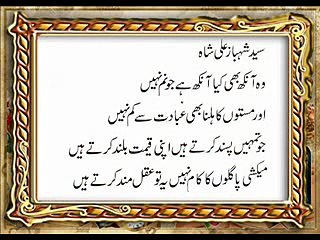 سید شہباز علی شاہ
وہ آنکھ بھی کیا آنکھ ہے جو نم نہیں
اور مستوں کا ہلنا بھی عبادت سے کم نہیں
جو تمہیں پسند کرتے ہیں اپنی قیمت بلند کرتے ہیں
میکشی پاگلوں کا کام نہیں یہ تو عقل مند کرتے ہیں